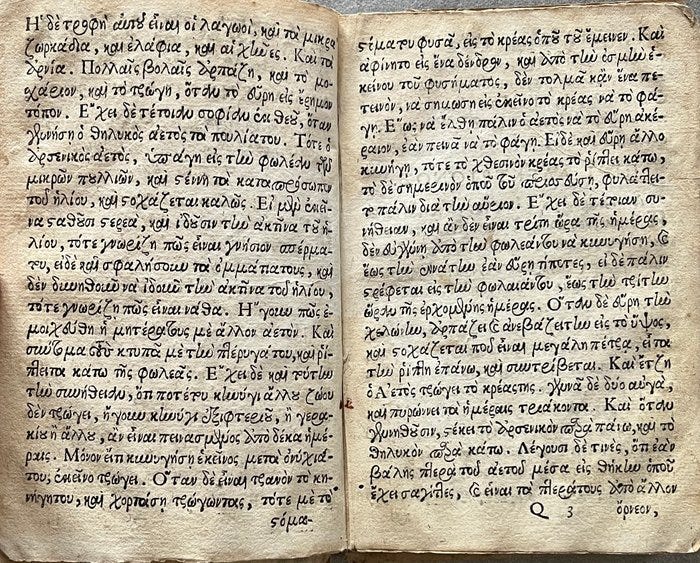 Ἡ δὲ τροφὴ αὐτοῦ εἶναι οἱ λαγωοὶ, καὶ τὰ μικρὰ
ζωρκάδια, καὶ ἐλάφια, καὶ αἱ χῆνες. Καὶ τὰ
ἀρνία. Πολλαῖς βολαῖς ἁρπάζη, καὶ τὸ μο-
χάριον, καὶ τὸ τρώγη, ὅταν τὸ εὕρη εἰς ἔρημον
τόπον. Ἔχει δὲ τέτοιαν σοφίαν ἐκ θεοῦ, ὅταν
γεννήση ὁ θηλυκὸς ἀετὸς τὰ πουλιάτου. Τότε ὁ
ἀρσενικὸς ἀετὸς, ὑπάγη εἰς τὴν φωλεὰν τῶν
μικρῶν πυλλιῶν, καὶ στέννη τὰ καταπρόσωπον
τοῦ ἡλίου, καὶ στοχάζεται καλῶς. Εἰ μὲν ἐκεῖ-
να σταθοῦσι στερεὰ, καὶ ἰδοῦσιν τὴν ἀκτῖνα τοῦ ἡ-
λίου, τότε γνωρίζη πῶς εἶναι γνήσιον σπέρμα-
του, εἰδὲ καὶ σφαλήσουν τὰ ὄμματα τους, καὶ
δὲν δυνηθοῦν νὰ ἰδοῦν τὴν ἀκτῖνα τοῦ ἡλίου,
τότε γνωρίζη πῶς εἶναι νάθα. Ἤγουν πῶς ἐ-
μοιχεύθη ἡ μητέρατους μὲ ἄλλον ἀετόν. Καὶ
κτυπᾶ μὲ τὴν πτέρυγα του, καὶ ρί-
πτει τα κάτω τῆς φωλεᾶς. Ἔχει δὲ καὶ τούτην
τὴν συνήθειαν, ὅτι ποτὲ κυνήγι ἄλλου ζώου
δὲν τρώγει, ἤγουν κυνήγι ξιφτεριοῦ, ἢ γερα-
κίου ἢ ἄλλου, ἂν εἶναι πεινασμένος ἀπὸ δεκα ἡμέ-
ραις. Μόνον ὅτι κυνηγήση ἐκεῖνος μετὰ ὀνύχιά-
του, ἐκεῖνο τρώγει. Ὅταν δὲ εἶναι τρανὸν τὸ κυ-
νήγητου, καὶ χορτάση τρώγωντας, τότε μὲ τὸ
στόμα-
στόματου φυσᾶ, εἰς τὸ κρέας ὁποῦ τοῦ ἔμεινεν. Καὶ
ἀφίνητο εἰς ἕνα δένδρον, καὶ ἀπὸ τὴν ὀσμὴν ἐ-
κείνου τοῦ φυσήματος, δὲν τολμᾶ κἂν ἕνα πε-
τεινὸν, νὰ σημώση εἰς ἐκεῖνο τὸ κρέας νὰ τὸ φά-
γη. Ἕως νὰ ἔλθη πάλιν ὁ ἀετὸς νὰ τὸ εὕρη ἀκέ-
ραιον, ἐὰν πεινᾶ νὰ τὸ φάγη. Εἰδὲ καὶ εὕρη ἄλλο
κυνήγη, τότε τὸ χθεσινὸν κρέας τὸ ρίπτει κάτω,
τὸ δὲ σημερινὸν ὁποῦ τοῦ περισσεύση, φυλάττει-
το πάλιν δια τὴν αὔριον. Ἔχει δὲ τέτοιαν συ-
νήθειαν, καὶ ἂν δὲν εἶναι τρίτη ὥρα τῆς ἡμέρας,
δὲν εὐγένη ἀπὸ τὴν φωλεάντου νὰ κυνηγήση, καὶ
ἕως τὴν ἐννάτην ἐὰν εὕρη τίποτες, εἰδὲ πάλιν
στρέφεται εἰς τὴν φωλεάντου, ἕως τὴν τρίτην
ὥραν τῆς ἐρχομένης ἡμέρας. Ὅταν δὲ εὕρη τὴν
χελώνην, ἁρπάζει καὶ ἀνεβάζει τὴν εἰς τὸ ὕψος,
καὶ στοχάζεται ποῦ εἶναι μεγάλη πέτρα, εἶτα
τὴν ρίπτη ἐπάνω, καὶ συντρίβεται. Καὶ ἔτζη
ὁ Ἀετὸς τρώγει τὸ κρέαςτης. Γεννᾶ δὲ δύο αὐγὰ,
καὶ πυρώννει τα ἡμέραις τριάκοντα. Καὶ ὅταν
γεννηθοῦσιν, στέκει τὸ ἀρσενικὸν πρὸς πάνω, καὶ τὸ
θηλυκὸν πρὸς κάτω. Λέγουσι δὲ τινὲς, ὅτι ἐὰν
βάλης πτερὰ τοῦ ἀετοῦ μέσα εἰς θήκην ὁποῦ
ἔχει σαγίτες, καὶ εἶναι τὰ πτεράτους ἀπὸ ἄλλον
Q 3 ὄρνεον,